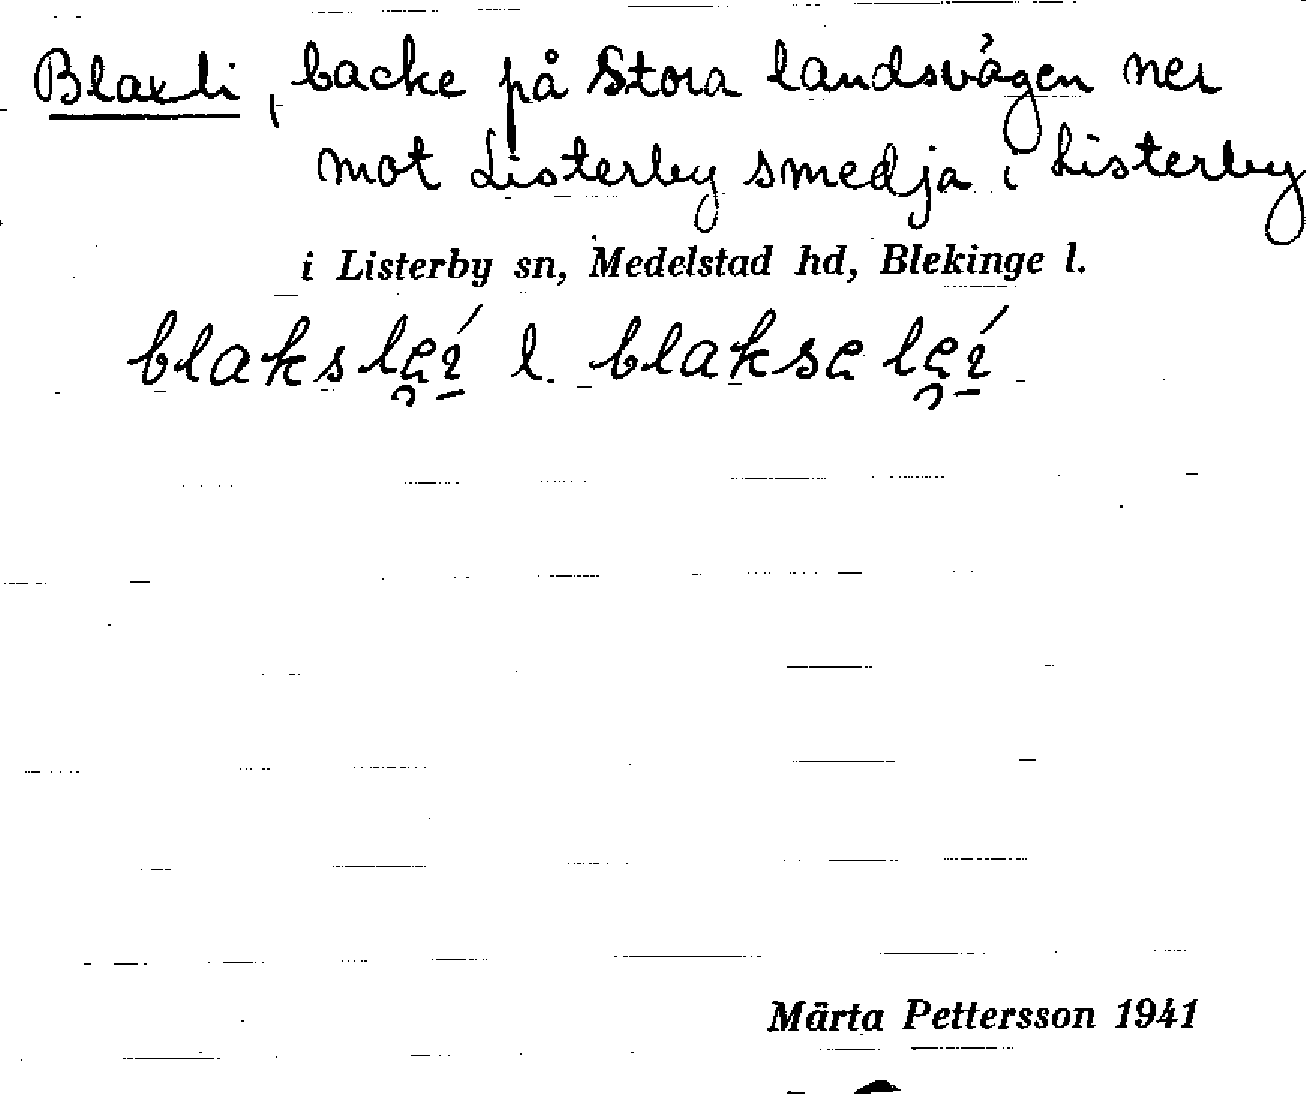 Blaxli, backe på Stora landsvägen ner
mot Listerby smedja i Listerby
i Listerby sn, Medelstad hd, Blekinge l.
l.
Märta Pettersson 1941